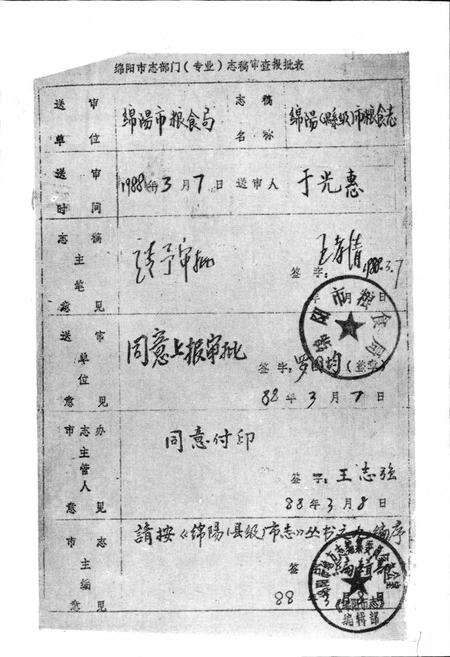 绵阳市志部门(专业)志稿审查报批表
送审单位 绵阳市粮食局 志稿名称 绵阳(县级)市粮食志
送审时间 1988年3月7日 送审人 于光惠
志稿主笔意见 请予审批
签字: 1988.3.7
年 月 日
绵阳市粮食局
送审单位意见 同意上报审批
签字: 罗国均(签字)
88年3月7日
市志办主管人意见 同意付印
签字: 王志强
88年3月8日
市志主编意见 請按《绵陽(县级)市志》丛书 编序
签
88年3
《绵阳市志》
编辑部